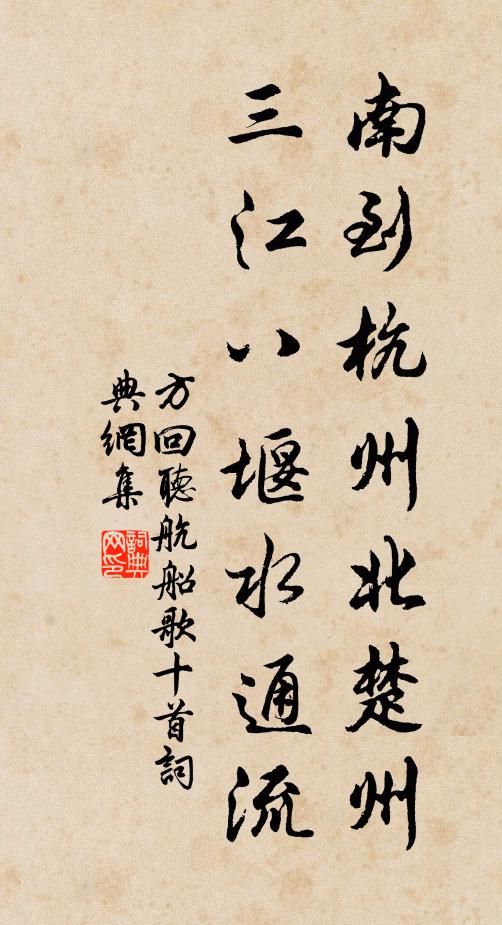 南到杭州北楚州
三江八堰水通流
方回聽航船歌十首詞
典網集
詞典
网印